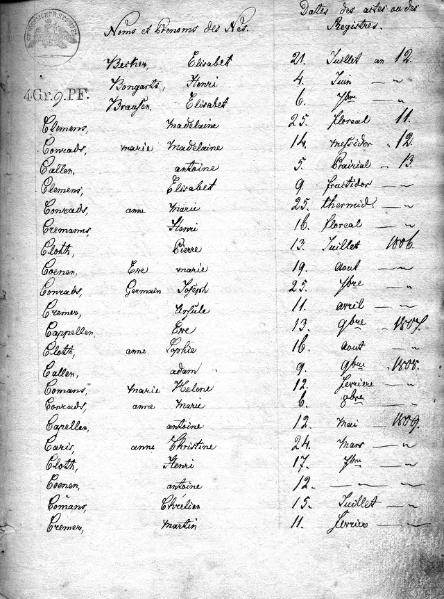 Noms et Prenoms des Nés.
Dates des actes ou des Registres.
4Gr.9.PF.
Elisabet 21. Juillet an 12.
Bongarts, Henri 4 Juin — "
Elisabet 6. 7bre "
Clemens, Madelaine 25. floreal 11.
Conrads, marie Madelaine 14. messidor 12.
Callen, antoine 5. Prairial 13.
Clemens, Elisabet 9 fructidor —
Conrads, anne Marie 25. thermid. —
Cremanns, Henri 16. floreal —
Cloth, Pierre 13. Juillet 1806.
Coenen, Eve marie 19. aout —
Conrads, Germain Joseph 25. 7bre —
Cremer, Ursule 11. avril —
Cappellen, Eve 13. 9bre 1807.
Cloth, anne Sophie 16. aout —
Callen, adam 9. 9bre 1808.
Comans, marie Helene 12. fevriere —
Conrads, anne Marie 6.
Capellen, antoine 12. mai 1809.
Caris, anne Christine 24. mars —
Cloth, Henri 17. 7bre —
Coenen, antoine 12. — —
Comans, Chretien 15. Juillet —
Cremer, martin 11. fevrier —